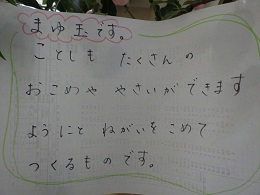 まゆ玉です。
ことしも たくさんの
おこめや やさいができます
ようにと ねがいを こめて
つくるものです。